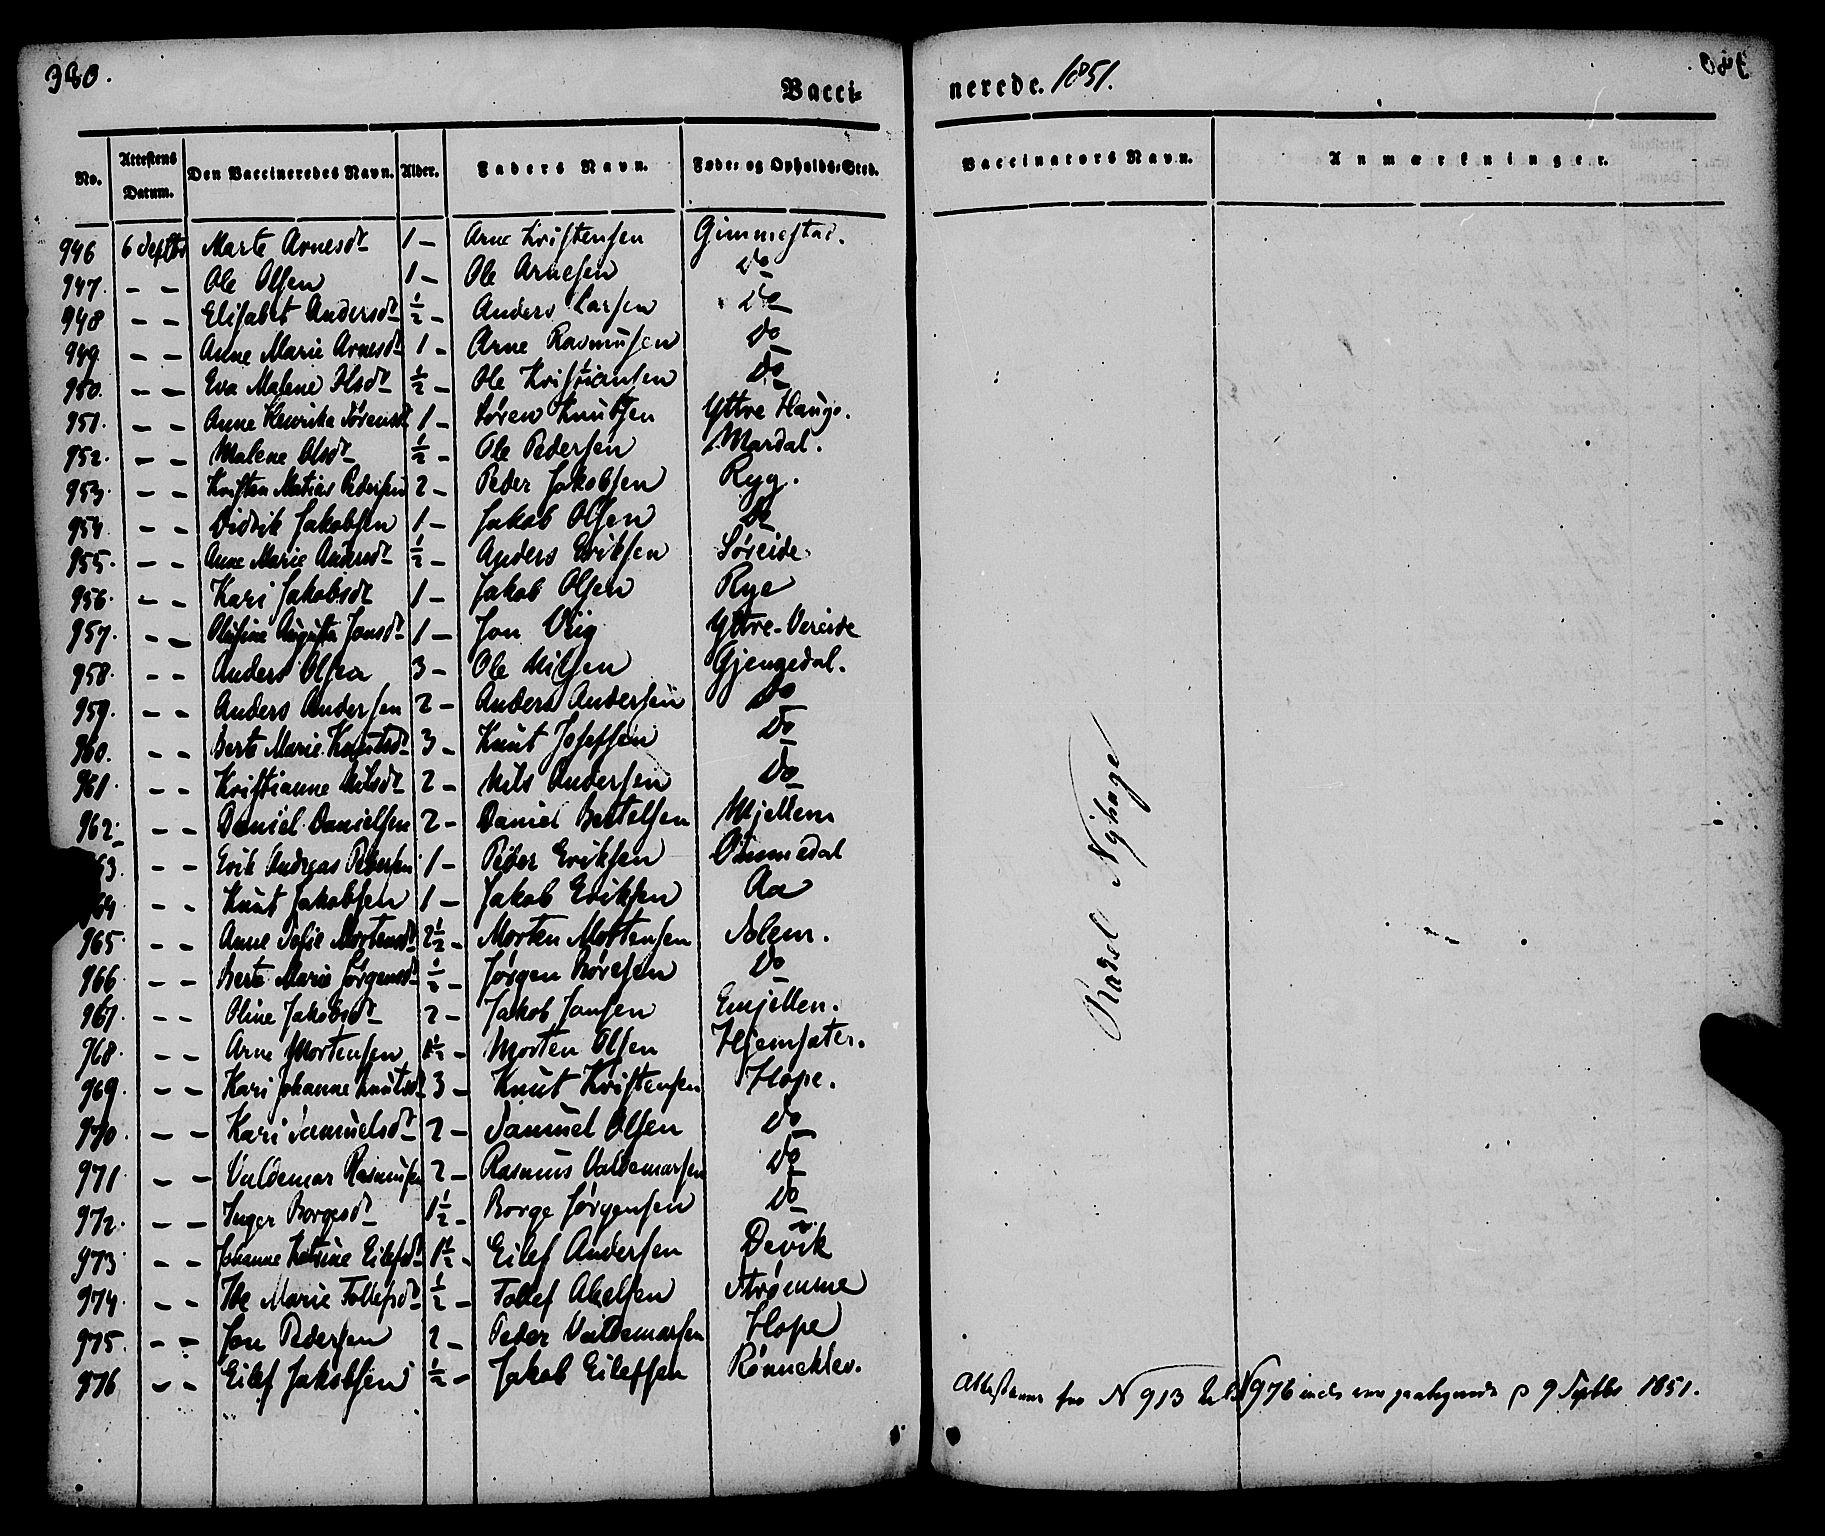 380.
Vaccinerede. 1851.
No. Attestens Datum. Den Vaccineredes Navn. Alder. Faders Navn. Føde- og Opholds-Sted. Vaccinators Navn. Anmærkninger.
946 6 Septbr Marte Arnesdr 1 - Arne Kristensen Gimmestad.
947. - - Ole Olsen 1 - Ole Arnesen Do
948 - - Elisabet Andersdr 1/2 - Anders Larsen Do
949 - - Anne Marie Arnesdr 1 - Arne Rasmusen Do
950. - - Eva Malene Olsdr 1/2 - Ole Kristiansen Do
951. - - Anne Henrika Sørensdr 1 - Søren Knutsen Yttre Hauge.
952. - - Malene Olsdr 1/2 - Ole Pedersen Mardal.
953. - - Kristen Matias Pedersen 2 - Peder Jakobsen Ryg.
954. - - Didrik Jakobsen 1 - Jakob Olsen Do
955. - - Anne Marie Andersdr 1/2 - Anders Eriksen Søreide.
956. - - Kari Jakobsdr 1 - Jakob Olsen Rye
957. - - Olufine Augusta Jonsdr 1 - Jon Yttre-Vereide
958. - - Anders Olsen 3 - Ole Nilsen Gjengedal.
959. - - Anders Andersen 2 - Anders Andersen Do
960. - - Berte Marie Knutsdr 3 - Knut Josefsen Do
961. - - Kristianne Nilsdr 2 - Nils Andersen Do
962. - - Daniel Danielsen 2 - Daniel Bertelsen Mjellem
63. - - Erik Andreas Pedersen 1 - Peder Eriksen Ommedal
64 - - Knut Jakobsen 1 - Jakob Eriksen Aa
965. - - Anne Sofie Mortensdr 2 1/2 - Morten Mortensen Solem.
966 - - Berte Marie Jørgensdr 1/2 - Jørgen Børesen Do
967. - - Oline Jakobsdr 2 - Jakob Jonsen Emjellen.
968. - - Arne Mortensen 1 1/2 - Morten Olsen Hjemsæter.
969. - - Kari Johanne Knutsdr 3 - Knut Kristensen Hope.
970. - - Kari Samuelsdr 2 - Samuel Olsen Do
971 - - Valdemar Rasmusen 2 - Rasmus Valdemarsen Do
972. - - Inger Borgesdr 1 1/2 - Borge Jørgensen Do
973 - - Johanne Katrine Eilefsdr 1 1/2 - Eilef Andersen Devik
974. - - Marie Tollefsdr 1/2 - Tollef Abelsen Strømme
975. - - Jon Pedersen 2 - Peder Valdemarsen Hope
976 - - Eilef Jakobsen 1/2 - Jakob Eilefsen Rønneklev.
Rasmus Nyhage
Attesterne fra N 913 til N 976 incls ere paategnede d 9 Septbr 1851.